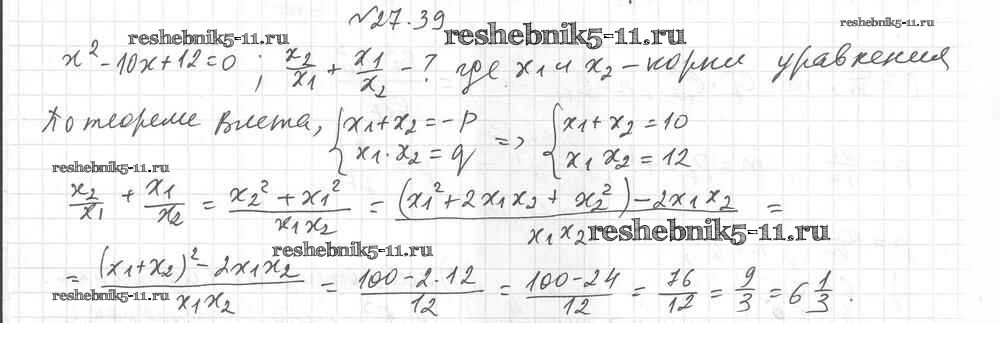 №27.39
reshebnik5-11.ru reshebnik5-11.ru reshebnik5-11.ru
x² - 10x + 12 = 0 ; x₂/x₁ + x₁/x₂ - ? где x₁ и x₂ - корни уравнения
По теореме Виета, { x₁ + x₂ = -p => { x₁ + x₂ = 10
x₁ · x₂ = q x₁ x₂ = 12
reshebnik5-11.ru
x₂/x₁ + x₁/x₂ = (x₂² + x₁²)/(x₁x₂) = ((x₁² + 2x₁x₂ + x₂²) - 2x₁x₂)/(x₁x₂) =
reshebnik5-11.ru reshebnik5-11.ru
= ((x₁+x₂)² - 2x₁x₂)/(x₁x₂) = (100 - 2·12)/12 = (100 - 24)/12 = 76/12 = 9/3 = 6 1/3.
reshebnik5-11.ru